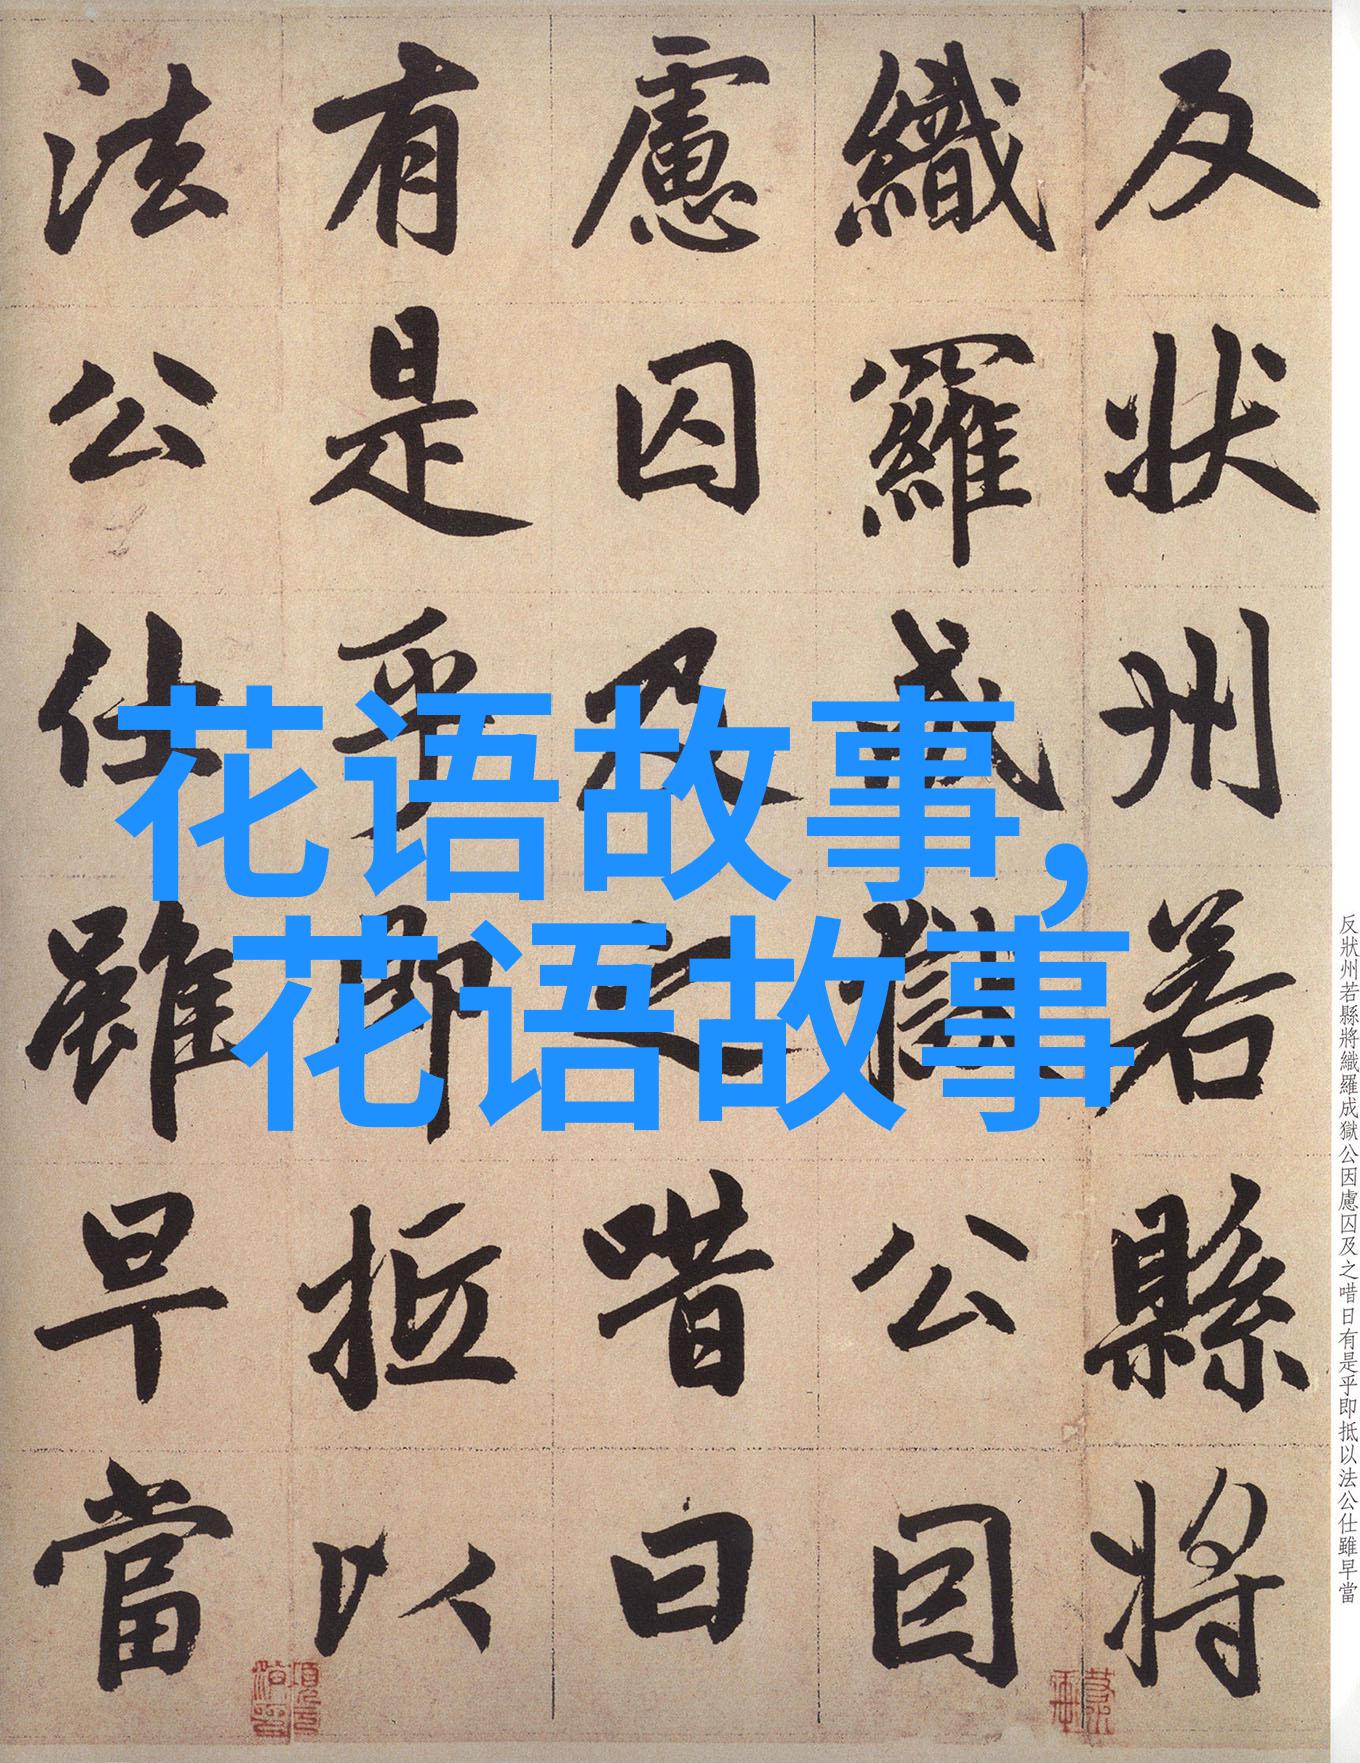 反狀州若縣將
織羅成獄公因
慮囚及之唶曰
有是乎即抵以
法公仕雖早當
花语故事,
花语故事
反狀州若縣將織羅成獄公因慮囚及之唶日有是乎即抵以法公仕雖早當